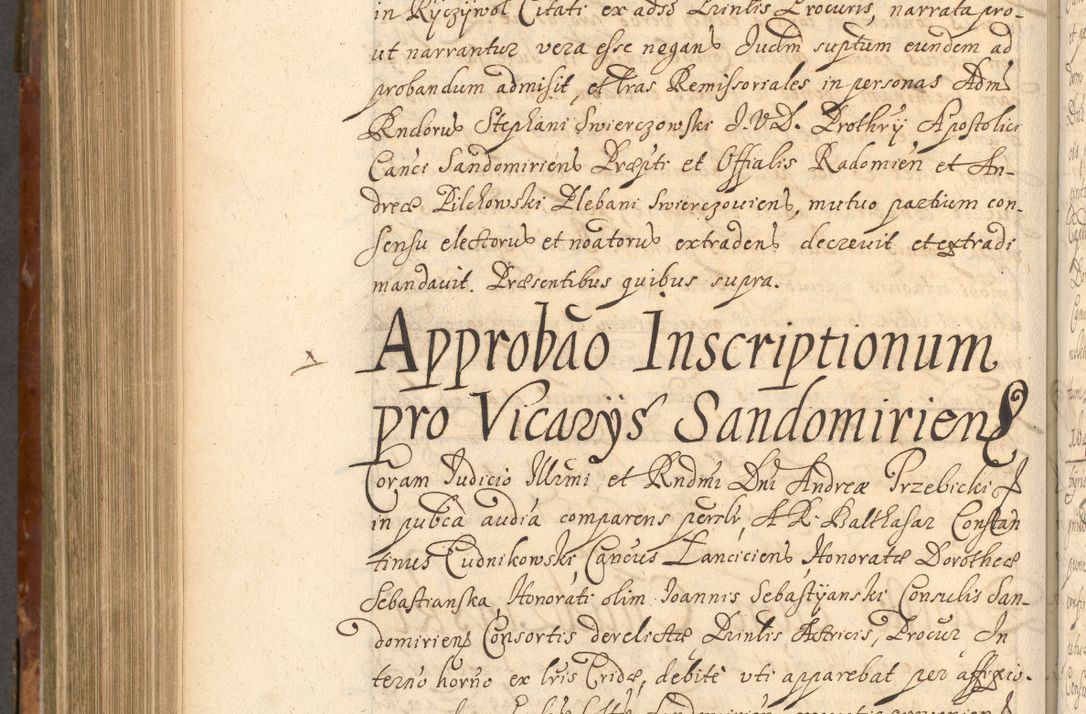 in Ryczÿwol Citati ex adso Princlis Procuris, narrata pro-
ut narrantur vera esse negans Judm suptum eundem ad
probandum admisit, et lras Remissoriales in personas Adm
Rndorus Stephani Swierczowski J.V.D. Prothrÿ Apostolici
Canci Sandomiriens Præpti et Offialis Radomien et An-
dreæ Pilchowski Plebani Swierczoviens, mutuo partium con-
sensu electorus et noatorus extradens decrevit et extradi
mandavit. Præsentibus quibus supra.
Approbao Inscriptionum
pro Vicarÿs Sandomiriens
Coram Judicio Illrmi et Rndmi Dni Andreæ Trzebicki
in pubca audia comparens persolr, A.R. Balthasar Constan
tinus Cudnikowski, Cancus Lanciciens, Honoratæ Dorotheæ
Sebastianska, Honorati olim Joannis Sebastÿanski Consulis San-
domiriens Consortis derelictæ Princlis Actricis, Procur In
terno horno ex lris Cridæ, debite uti apparebat per affixio-